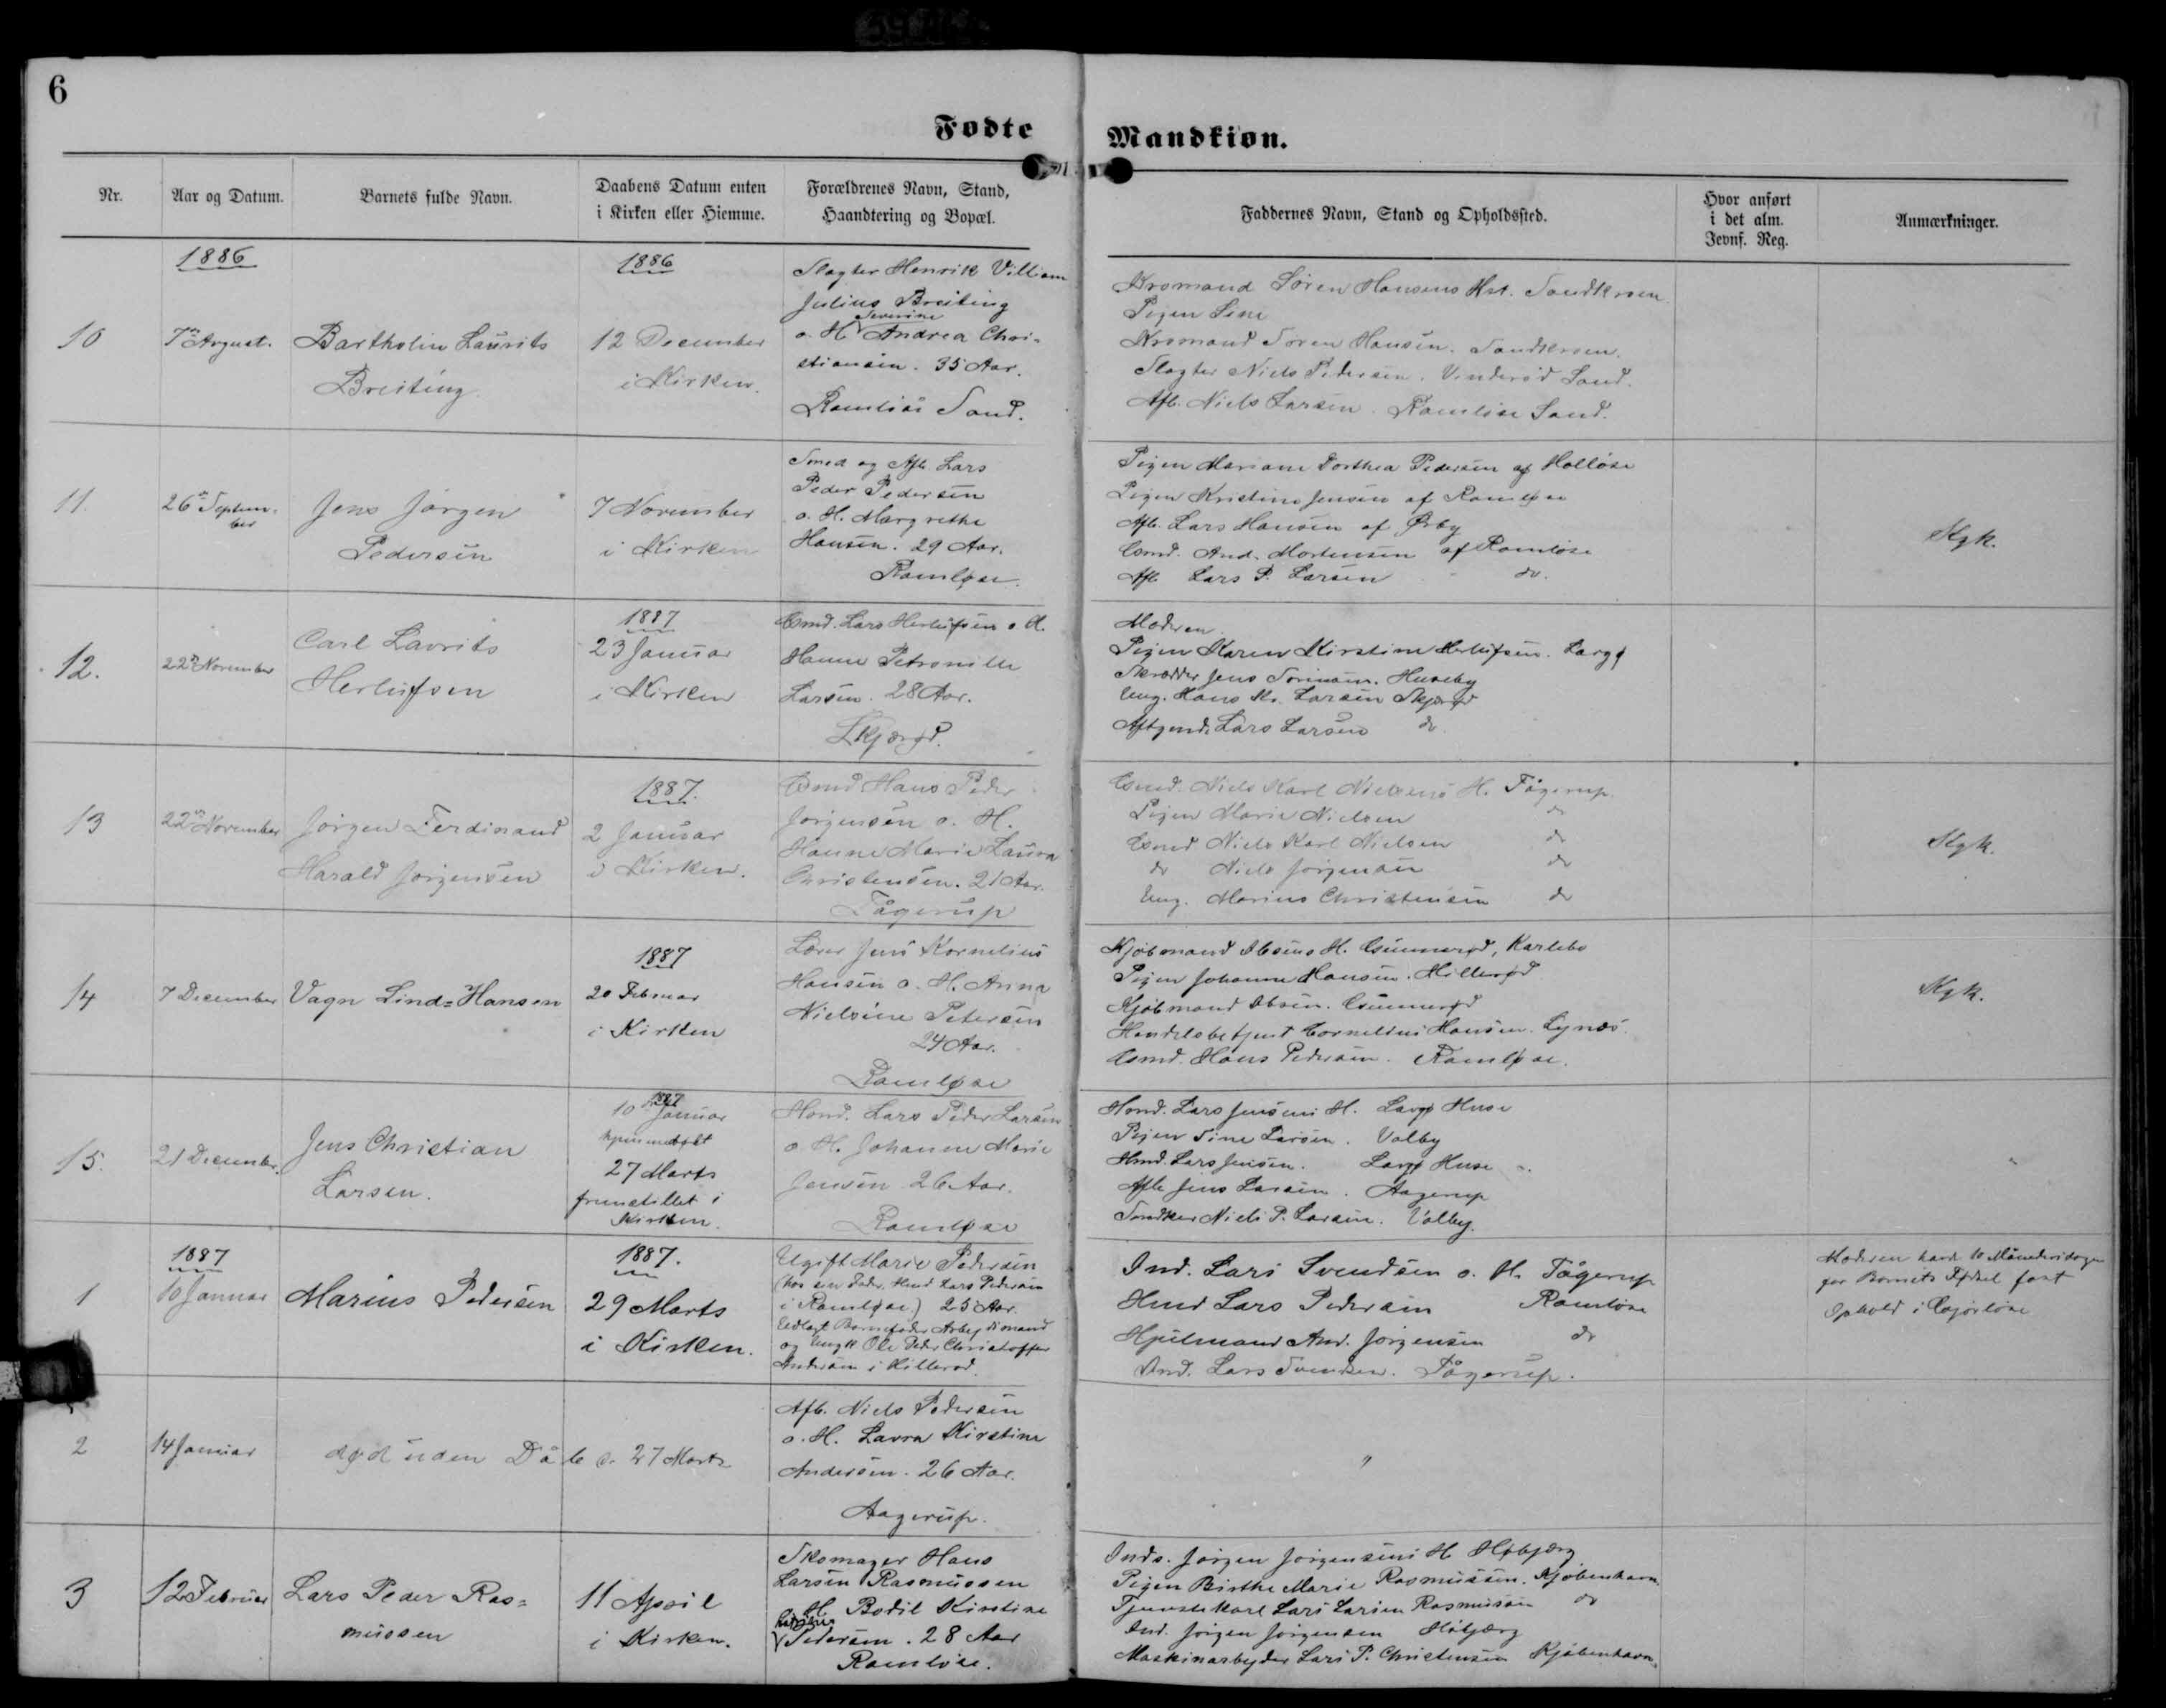 6
Fødte Mandkiøn.
Nr.
Aar og Datum.
Barnets fulde Navn.
Daabens Datum enten
i Kirken eller Hiemme.
Forældrenes Navn, Stand,
Haandtering og Bopæl.
Faddernes Navn, Stand og Opholdssted.
Hvor anført
i det alm.
Jevnf. Reg.
Anmærkninger.
1886
10
7de August.
Bartholin Laurits
Breiting
1886
12 December
i Kirken.
Slagter Henrik Villiam
Julius Breiting
Severine
o. H. Andrea Chri-
stiansen. 35 Aar.
Ramløse Sand.
Kromand Søren Hansens Hst. Sandkroen
Pigen Sine
Kromand Søren Hansen. Sandkroen.
Slagter Niels Pedersen. Vinderød Sand.
Aftb. Niels Larsen. Ramløse Sand.
11.
26de Septem-
ber
Jens Jørgen
Pedersen
7 November
i Kirken
Smed og Aftb. Lars
Peder Pedersen
o. H. Margrethe
Hansen. 29 Aar.
Ramløse.
Pigen Mariane Dorthea Pedersen af Holløse
Pigen Kristine Jensen af Ramløse
Aftb. Lars Hansen af Ørby
Gmd. And. Mortensen af Ramløse
Aftb Lars P. Larsen do.
Kgk.
12.
22de November
Carl Lavrits
Herlufsen
1887
23 Januar
i Kirken
Gmd. Lars Herlufsen o. H.
Hanne Petronille
Larsen. 28 Aar.
Skjærød.
Moderen
Pigen Karen Kirstine Herlufsen. Laugø
Skrædder Jens Sørensen. Huseby
Ung. Hans Kr. Larsen Skjærød
Aftgmd. Lars Larsen do
13
22de November
Jørgen Ferdinand
Harald Jørgensen
1887.
2 Januar
i Kirken.
Gmd Hans Peder
Jørgensen o. H.
Hanne Marie Laura
Christensen. 21 Aar.
Tågerup
Gmd. Niels Karl Nielsens H. Tågerup
Pigen Marie Nielsen do
Gmd Niels Karl Nielsen do
do Niels Jørgensen do
Ung. Marius Christensen do
Kgk.
14
7 December
Vagn Lind-Hansen
1887
20 Februar
i Kirken
Lærer Jens Kornelius
Hansen o. H. Anna
Nielsine Petersen
24 Aar.
Ramløse
Kjøbmand Ibsens H. Gunnerød, Karlebo
Pigen Johanne Hansen. Hillerød
Kjøbmand Ibsen. Gunnerød
Handelsbetjent Cornelius Hansen. Lynæs.
Gmd. Hans Pedersen. Ramløse.
Kgk.
15.
21 December
Jens Christian
Larsen.
1887
10 Januar
hjemmedøbt
27 Marts
fremstillet i
Kirken.
Hmd. Lars Peder Larsen
o H. Johanne Marie
Jensen 26 Aar.
Ramløse
Hmd. Lars Jensens H. Laugø Huse
Pigen Sine Larsen. Valby
Hmd. Lars Jensen. Laugø Huse
Aftb Jens Larsen. Aagerup
Snedker Niels P. Larsen. Valby.
1887
1
10 Januar
Marius Pedersen
1887.
29 Marts
i Kirken.
Ugift Marie Pedersen
(hos sin Fader, Hmd Lars Pedersen
i Ramløse) 25 Aar.
Udlagt Barnefader Arbejdsmand
og Ungk Ole Peder Christoffer
Andersen i Hillerød.
Ind. Lars Svendsen o. H. Tågerup
Hmd Lars Pedersen Ramløse
Hjulmand And. Jørgensen do
Ind. Lars Svendsen. Tågerup.
Moderen havde 10 Månedersdagen
før Barnets Fødsel fast
Ophold i Ejørløse
2
14 Januar
død uden Dåb d. 27 Marts
Aftb. Niels Pedersen
o. H. Lavra Kirstine
Andersen. 26 Aar.
Aagerup.
"
3
12 Februar
Lars Peder Ras-
mussen
11 April
i Kirken.
Skomager Hans
Larsen Rasmussen
H Bodil Kirstine
Pedersen. 28 Aar
Ramløse.
Inds. Jørgen Jørgensens H Høbjærg
Pigen Birthe Marie Rasmussen. Kjøbenhavn.
Tjenestekarl Lars Larsen Rasmussen do
Ind. Jørgen Jørgensen Høbjærg
Maskinarbejder Lars P. Christensen Kjøbenhavn.